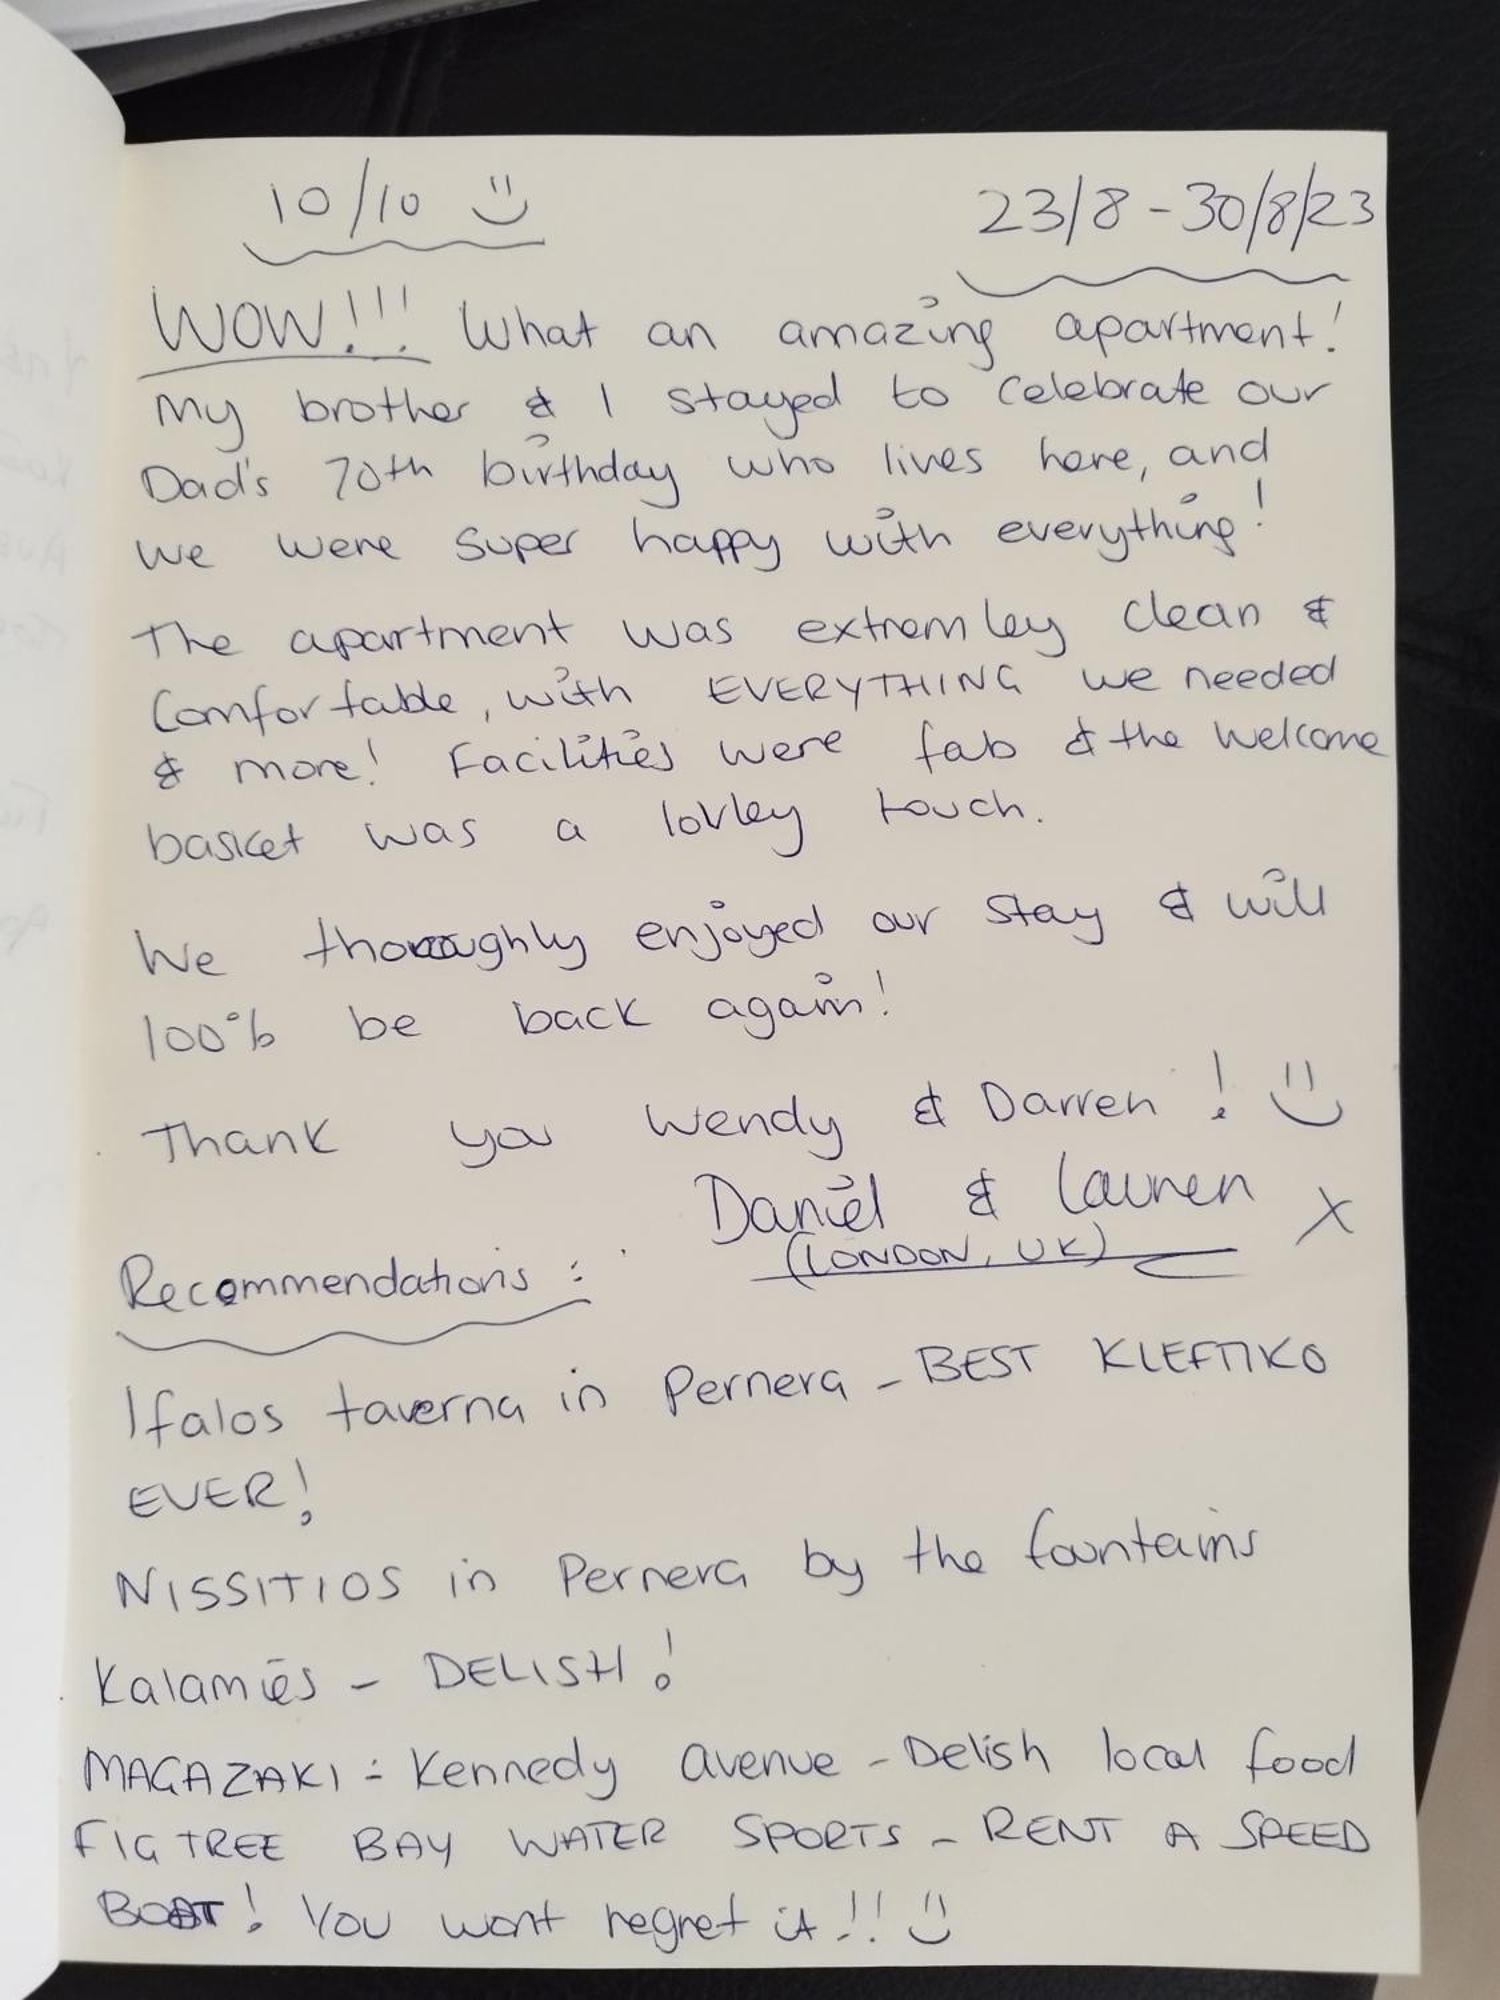 10/10
23/8 - 30/8/23
WOW!!! What an amazing apartment!
My brother & I stayed to celebrate our
Dad's 70th birthday who lives here, and
we were super happy with everything!
The apartment was extremley clean &
Comfortable, with EVERYTHING we needed
& more! Facilities were fab & the welcome
basket was a lovley touch.
We thoroughly enjoyed our stay & will
100% be back again!
Thank you Wendy & Darren!
Daniel & Lauren x
(LONDON, UK)
Recommendations:
Ifalos taverna in Pernera - BEST KLEFTIKO
EVER!
NISSITIOS in Pernera by the fountains
Kalamies - DELISH!
MAGAZAKI - Kennedy avenue - Delish local food
FIG TREE BAY WATER SPORTS - RENT A SPEED
BOAT! You wont regret it!!